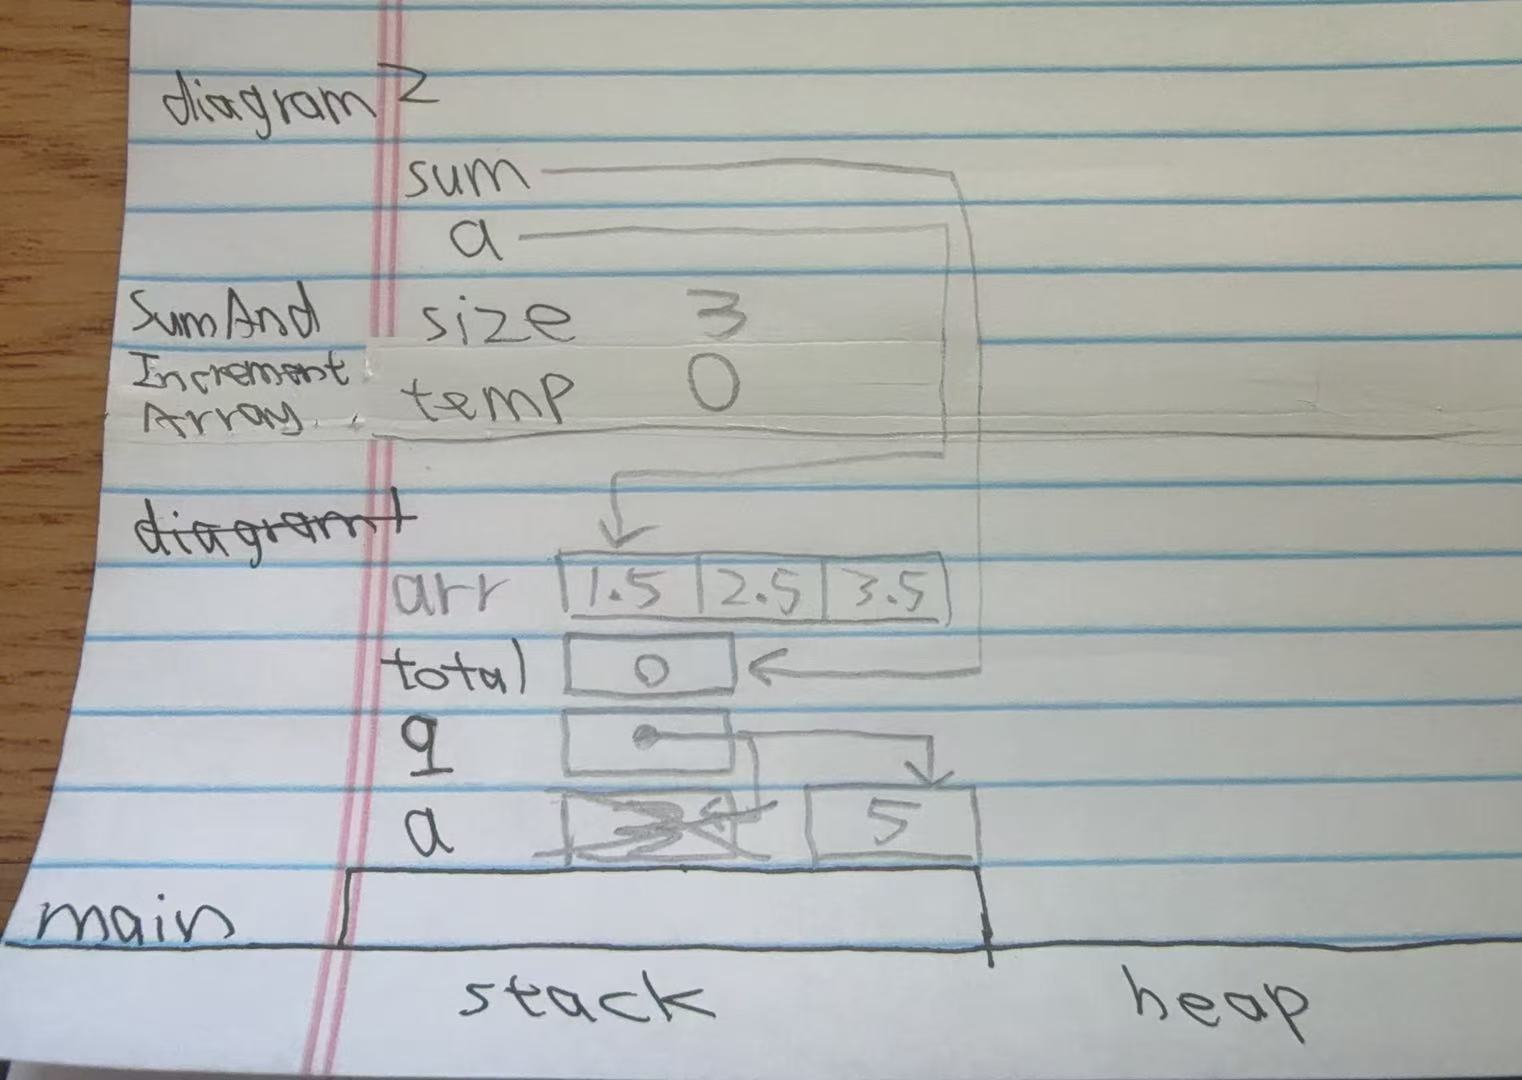 diagram 2
sum
a
SumAnd size 3
Increment
Array temp 0
diagram 1
arr 1.5 2.5 3.5
total 0
q
a 3 5
main
stack heap